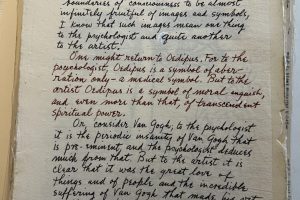 boundaries of consciousness to be almost
infinitely fruitful of images and symbols,
I know that such images mean one thing
to the psychologist and quite another
to the artist.
One might return to Oedipus. For to the
psychologist, Oedipus is a symbol of aber-
ration only – a medical symbol. But to the
artist Oedipus is a symbol of moral anguish,
and even more than that, of transcendent
spiritual power.
Or, consider Van Gogh, to the psychologist
it is the periodic insanity of Van Gogh that
is pre-eminent, and the psychologist deduces
much from that. But to the artist it is
clear that it was the great love of
things and of people and the incredible
suffering of Van Gogh that made his art